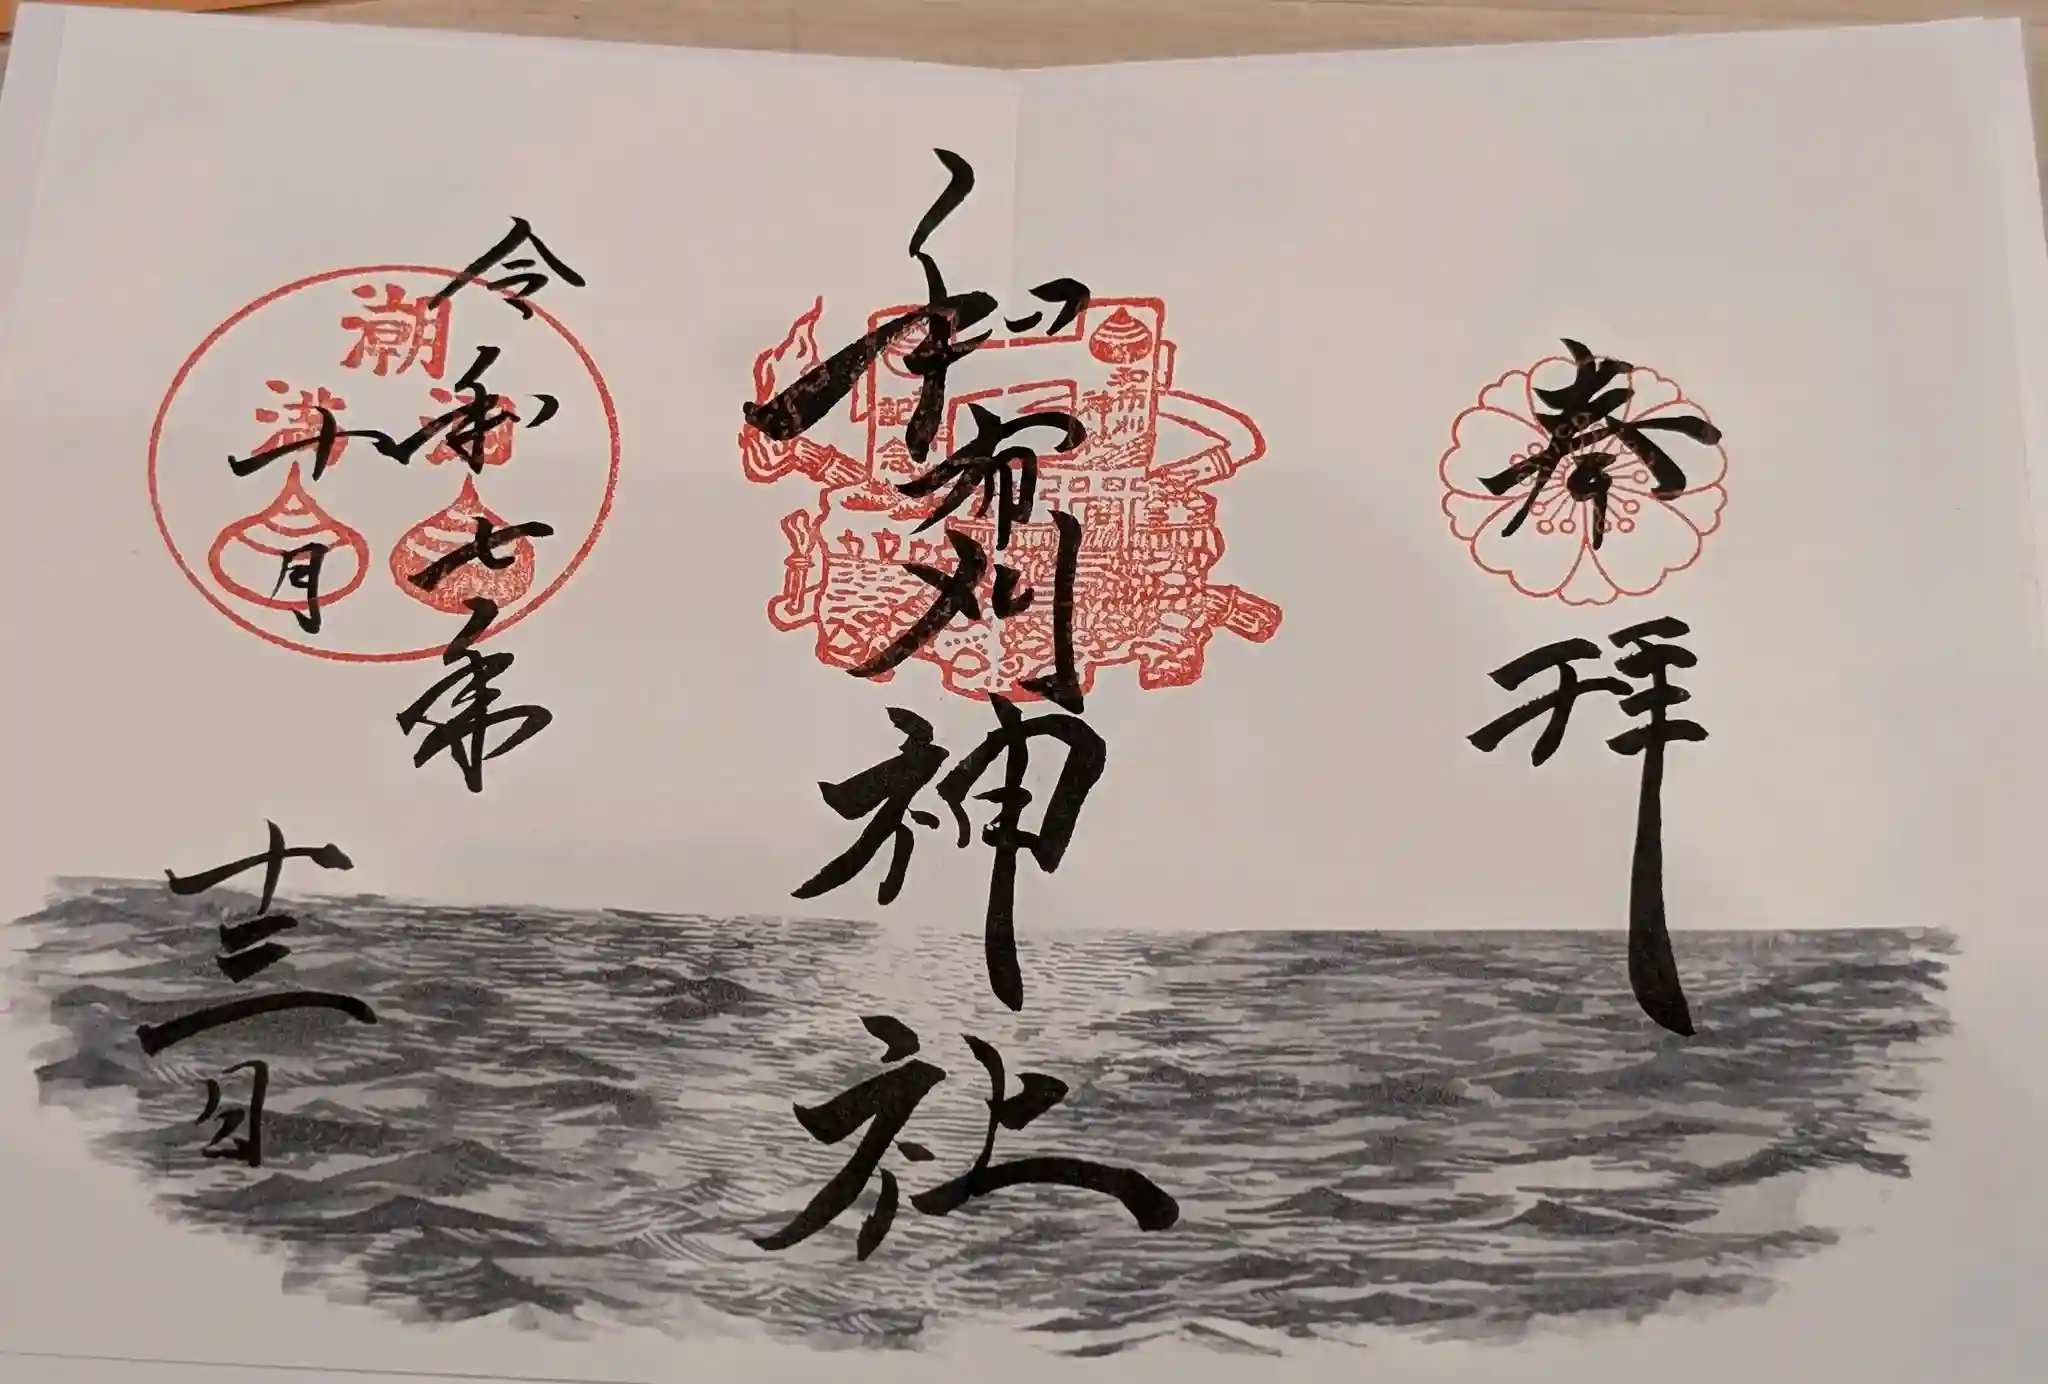 奉拝
和布刈神社
令和七年
十月
十三日
和布刈
神
記念
潮
満